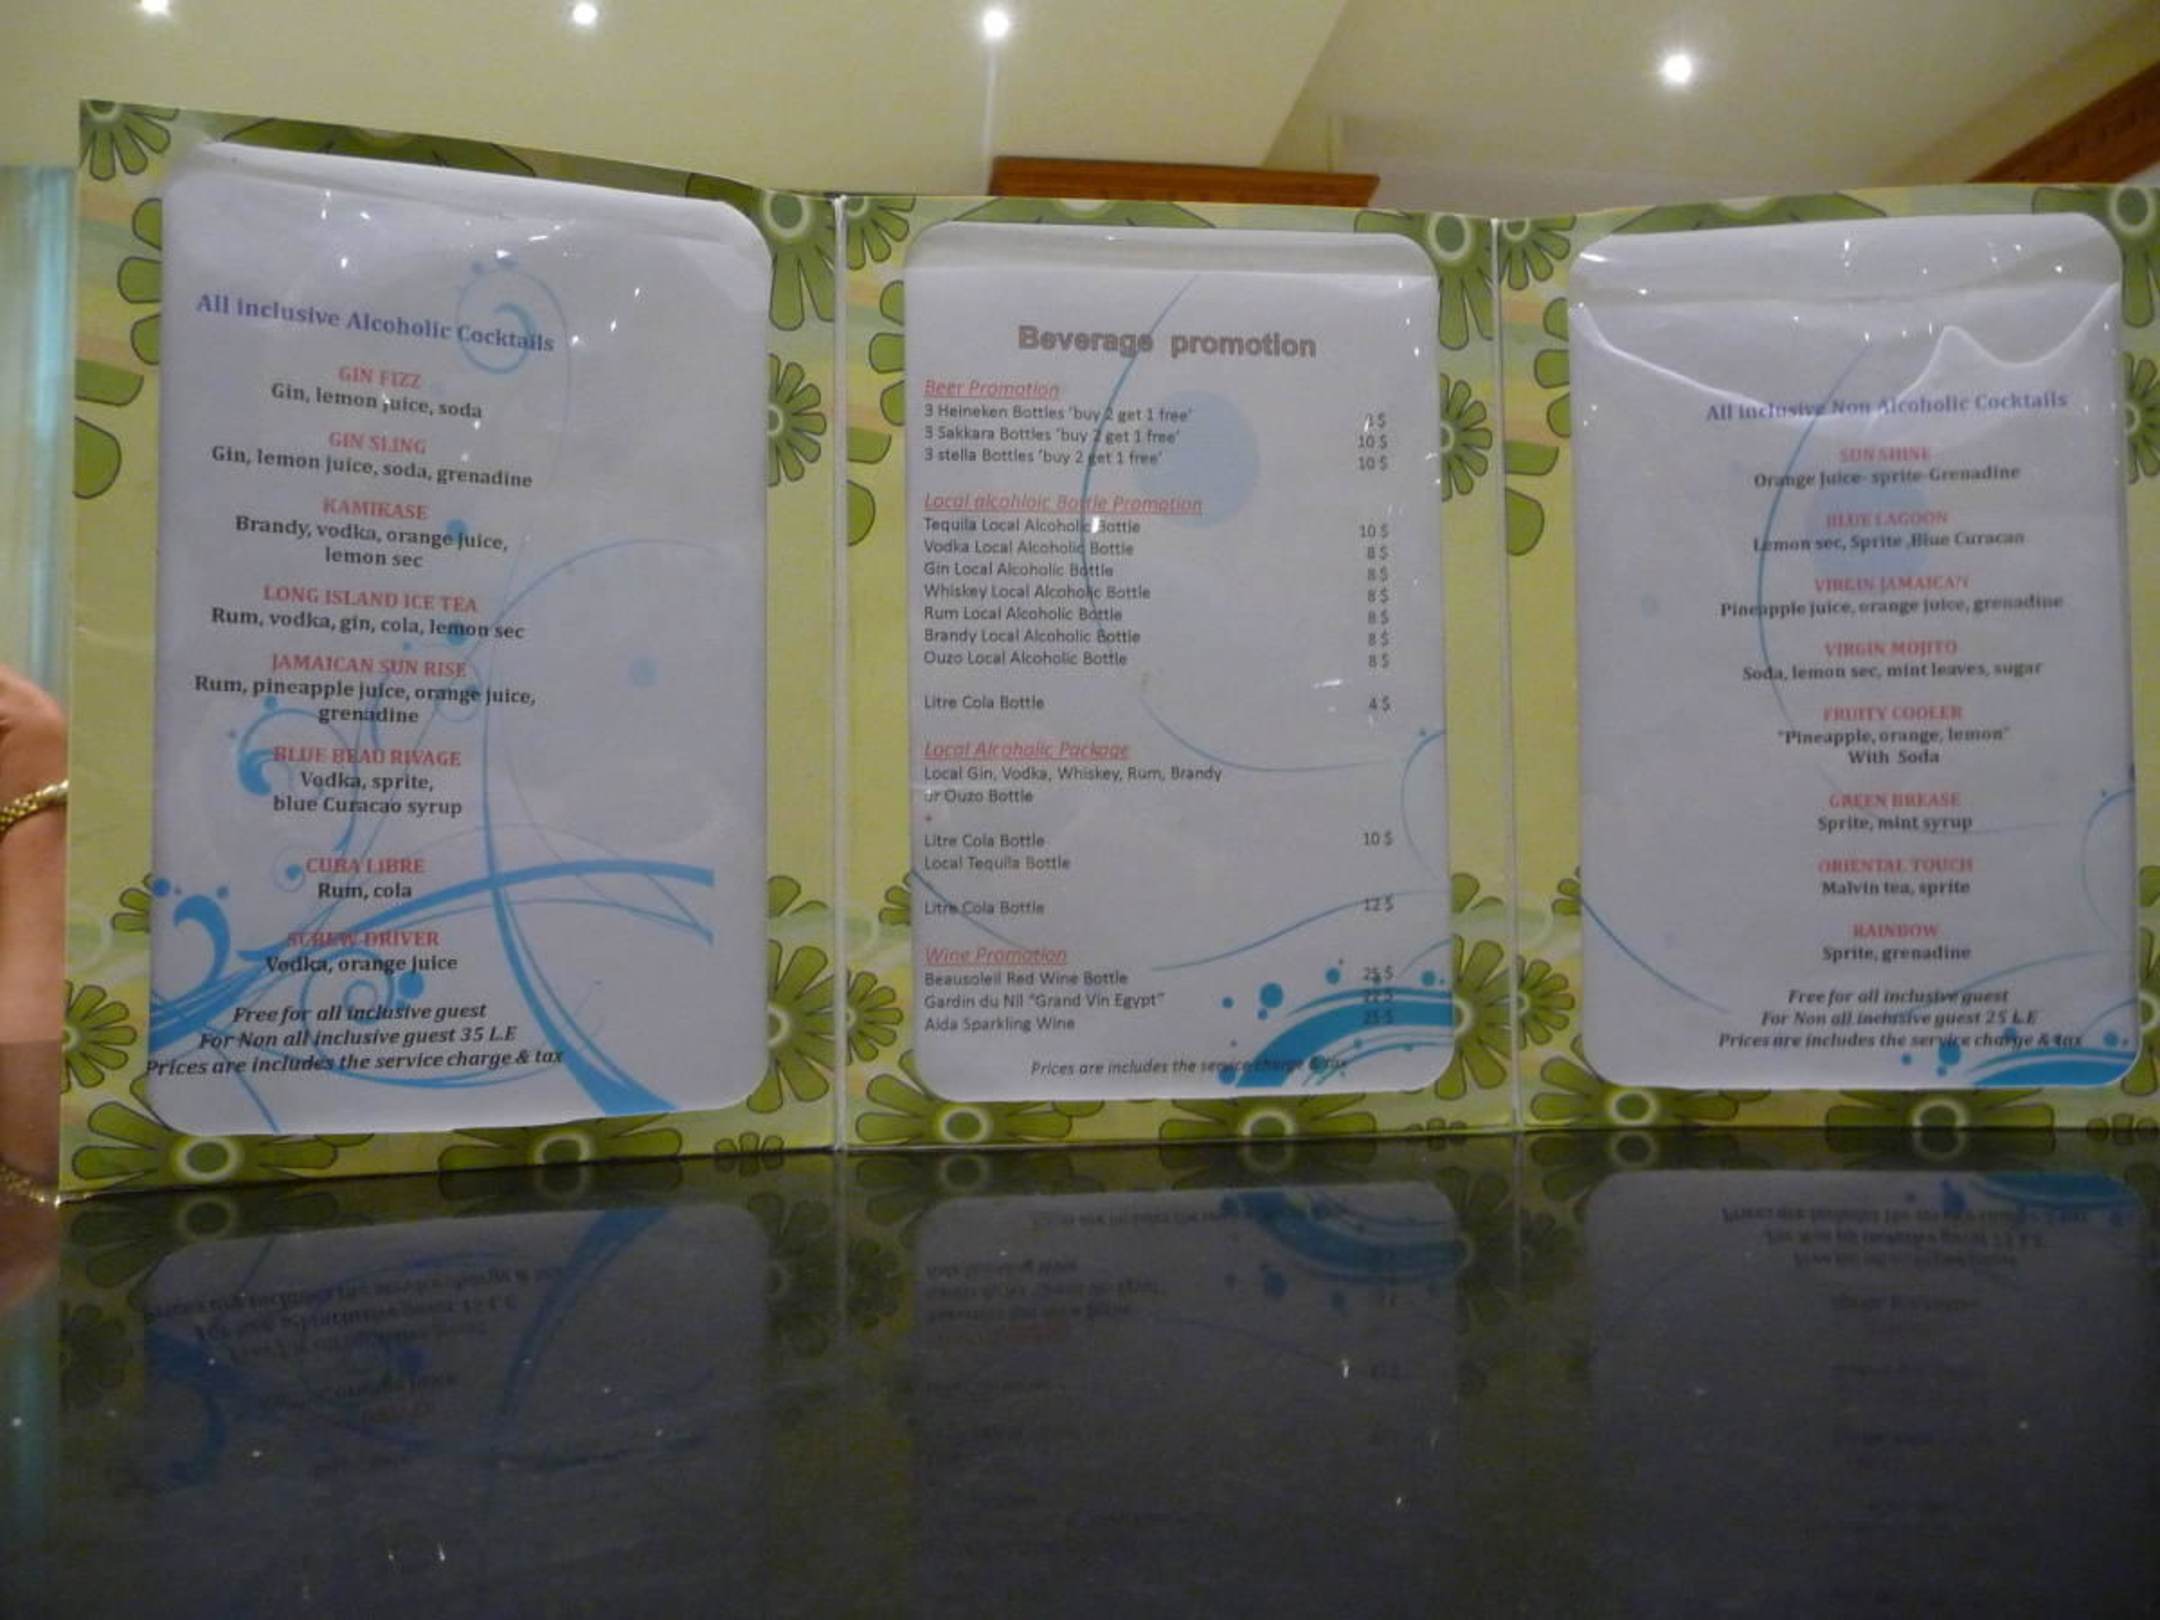 All inclusive Alcoholic Cocktails
GIN FIZZ
Gin, lemon juice, soda
GIN SLING
Gin, lemon juice, soda, grenadine
KAMIKASE
Brandy, vodka, orange juice,
lemon sec
LONG ISLAND ICE TEA
Rum, vodka, gin, cola, lemon sec
JAMAICAN SUN RISE
Rum, pineapple juice, orange juice,
grenadine
BLUE BEAU RIVAGE
Vodka, sprite,
blue Curacao syrup
CUBA LIBRE
Rum, cola
SCREW DRIVER
Vodka, orange juice
Free for all inclusive guest
For Non all inclusive guest 35 L.E
Prices are includes the service charge & tax
Beverage promotion
Beer Promotion
3 Heineken Bottles 'buy 2 get 1 free'
3 Sakkara Bottles 'buy 2 get 1 free' 10 $
3 stella Bottles 'buy 2 get 1 free' 10 $
Local alcohloic Bottle Promotion
Tequila Local Alcoholic Bottle 10 $
Vodka Local Alcoholic Bottle 8 $
Gin Local Alcoholic Bottle 8 $
Whiskey Local Alcoholic Bottle 8 $
Rum Local Alcoholic Bottle 8 $
Brandy Local Alcoholic Bottle 8 $
Ouzo Local Alcoholic Bottle 8 $
Litre Cola Bottle 4 $
Local Alcoholic Package
Local Gin, Vodka, Whiskey, Rum, Brandy
or Ouzo Bottle
+
Litre Cola Bottle 10 $
Local Tequila Bottle
Litre Cola Bottle 12 $
Wine Promotion
Beausoleil Red Wine Bottle 25 $
Gardin du Nil "Grand Vin Egypt"
Aida Sparkling Wine 25 $
Prices are includes the service charge & tax
All inclusive Non Alcoholic Cocktails
SUN SHINE
Orange Juice- sprite-Grenadine
BLUE LAGOON
Lemon sec, Sprite ,Blue Curacan
VIRGIN JAMAICAN
Pineapple juice, orange juice, grenadine
VIRGIN MOJITO
Soda, lemon sec, mint leaves, sugar
FRUITY COOLER
"Pineapple, orange, lemon"
With Soda
GREEN BREASE
Sprite, mint syrup
ORIENTAL TOUCH
Malvin tea, sprite
RAINBOW
Sprite, grenadine
Free for all inclusive guest
For Non all inclusive guest 25 L.E
Prices are includes the service charge & tax